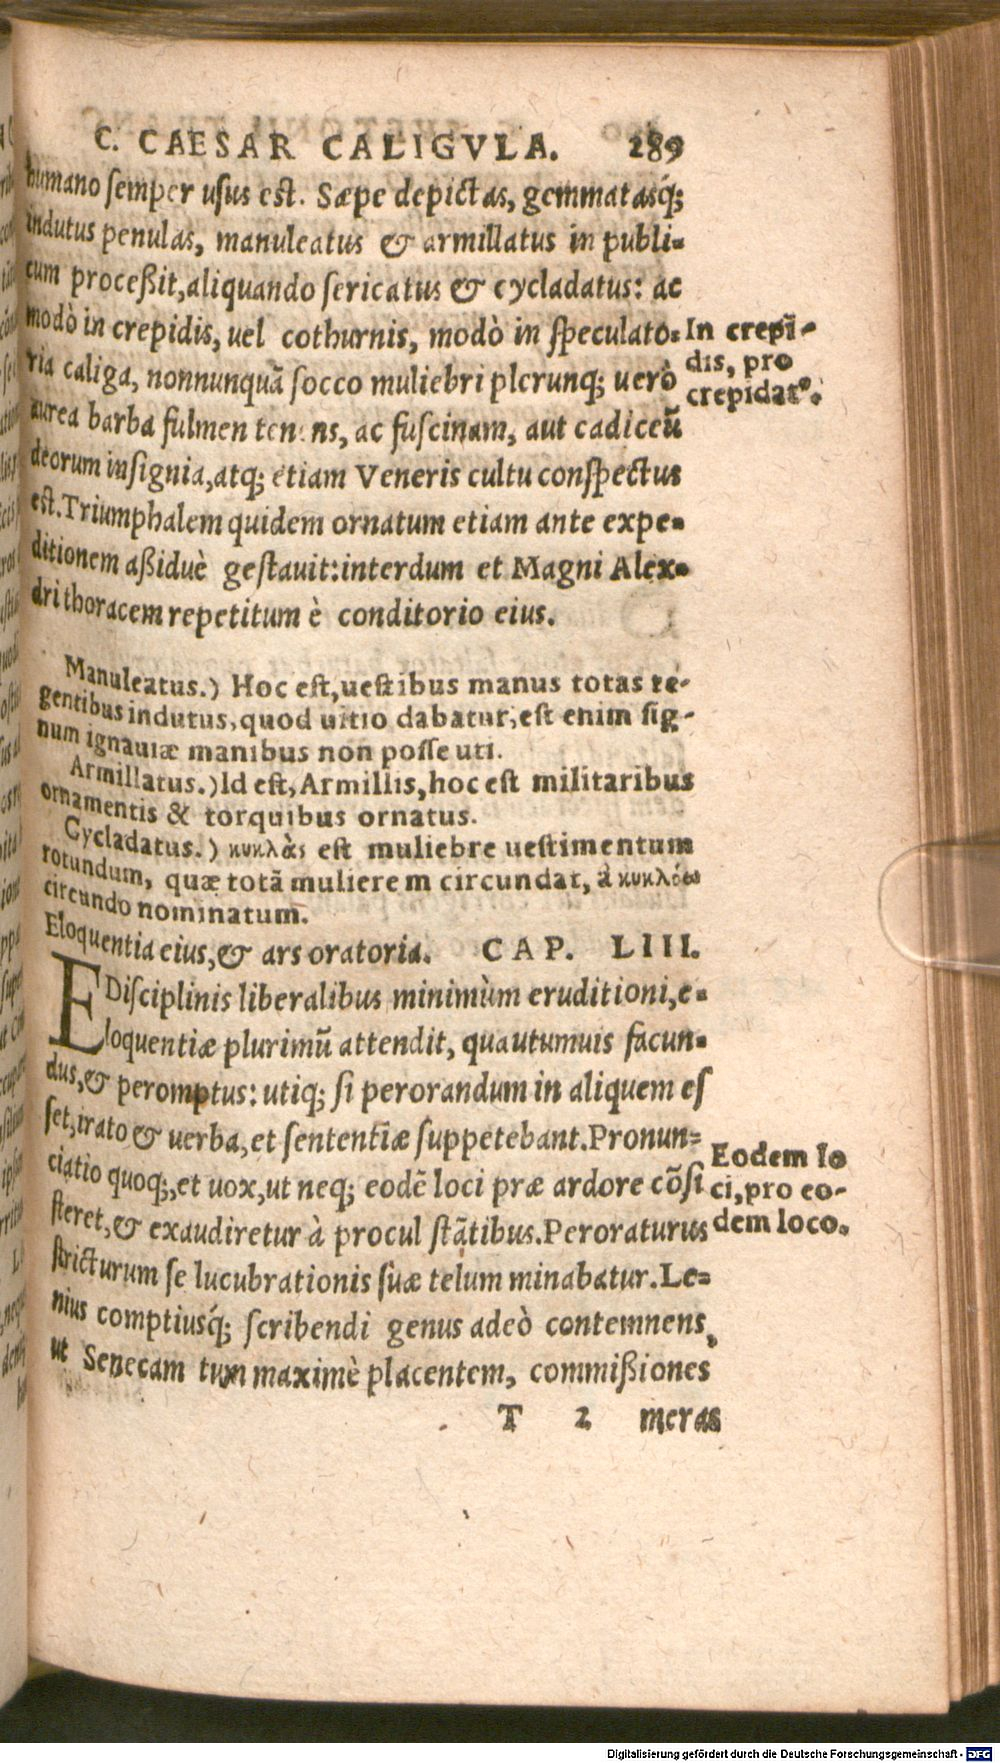 C. CAESAR CALIGVLA. 289
humano semper usus est. Sæpe depictas, gemmatasq́;
indutus penulas, manuleatus & armillatus in publi=
cum proceßit, aliquando sericatus & cycladatus: ac
modò in crepidis, uel cothurnis, modò in speculato=
ria caliga, nonnunquã socco muliebri plerunq; uerò
aurea barba fulmen tenens, ac fuscinam, aut cadiceũ
deorum insignia, atq; etiam Veneris cultu conspectus
est. Triumphalem quidem ornatum etiam ante expe=
ditionem aßiduè gestauit: interdum et Magni Alex=
dri thoracem repetitum è conditorio eius.
In crepi-
dis, pro
crepidatꝰ.
Manuleatus.) Hoc est, uestibus manus totas te-
gentibus indutus, quod uitio dabatur, est enim sig-
num ignauiæ manibus non posse uti.
Armillatus.) Id est, Armillis, hoc est militaribus
ornamentis & torquibus ornatus.
Cycladatus.) κυκλὰς est muliebre uestimentum
rotundum, quæ totã mulierem circundat, à κυκλόω
circundo nominatum.
Eloquentia eius, & ars oratoria. CAP. LIII.
E Disciplinis liberalibus minimùm eruditioni, e=
loquentiæ plurimũ attendit, quãtumuis facun=
dus, & peromptus: utiq; si perorandum in aliquem es
set, irato & uerba, et sententiæ suppetebant. Pronun=
ciatio quoq;, et uox, ut neq; eodẽ loci præ ardore cõsi
steret, & exaudiretur à procul stãtibus. Peroraturus
stricturum se lucubrationis suæ telum minabatur. Le=
nius comptiusq́; scribendi genus adeò contemnens,
ut Senecam tum maximè placentem, commißiones
Eodem lo
ci, pro eo-
dem loco.
T 2 meras
Digitalisierung gefördert durch die Deutsche Forschungsgemeinschaft - DFG